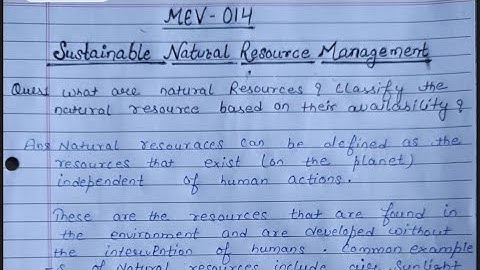 MEV-014
Sustainable Natural Resource Management
Ques1 What are natural Resources? Classify the
natural resource based on their availability?
Ans Natural resouraces can be defined as the
resources that exist (on the planet)
independent of human actions.
These are the resources that are found in
the environment and are developed without
the intervention of humans. Common example
of Natural resources include air, Sunlight